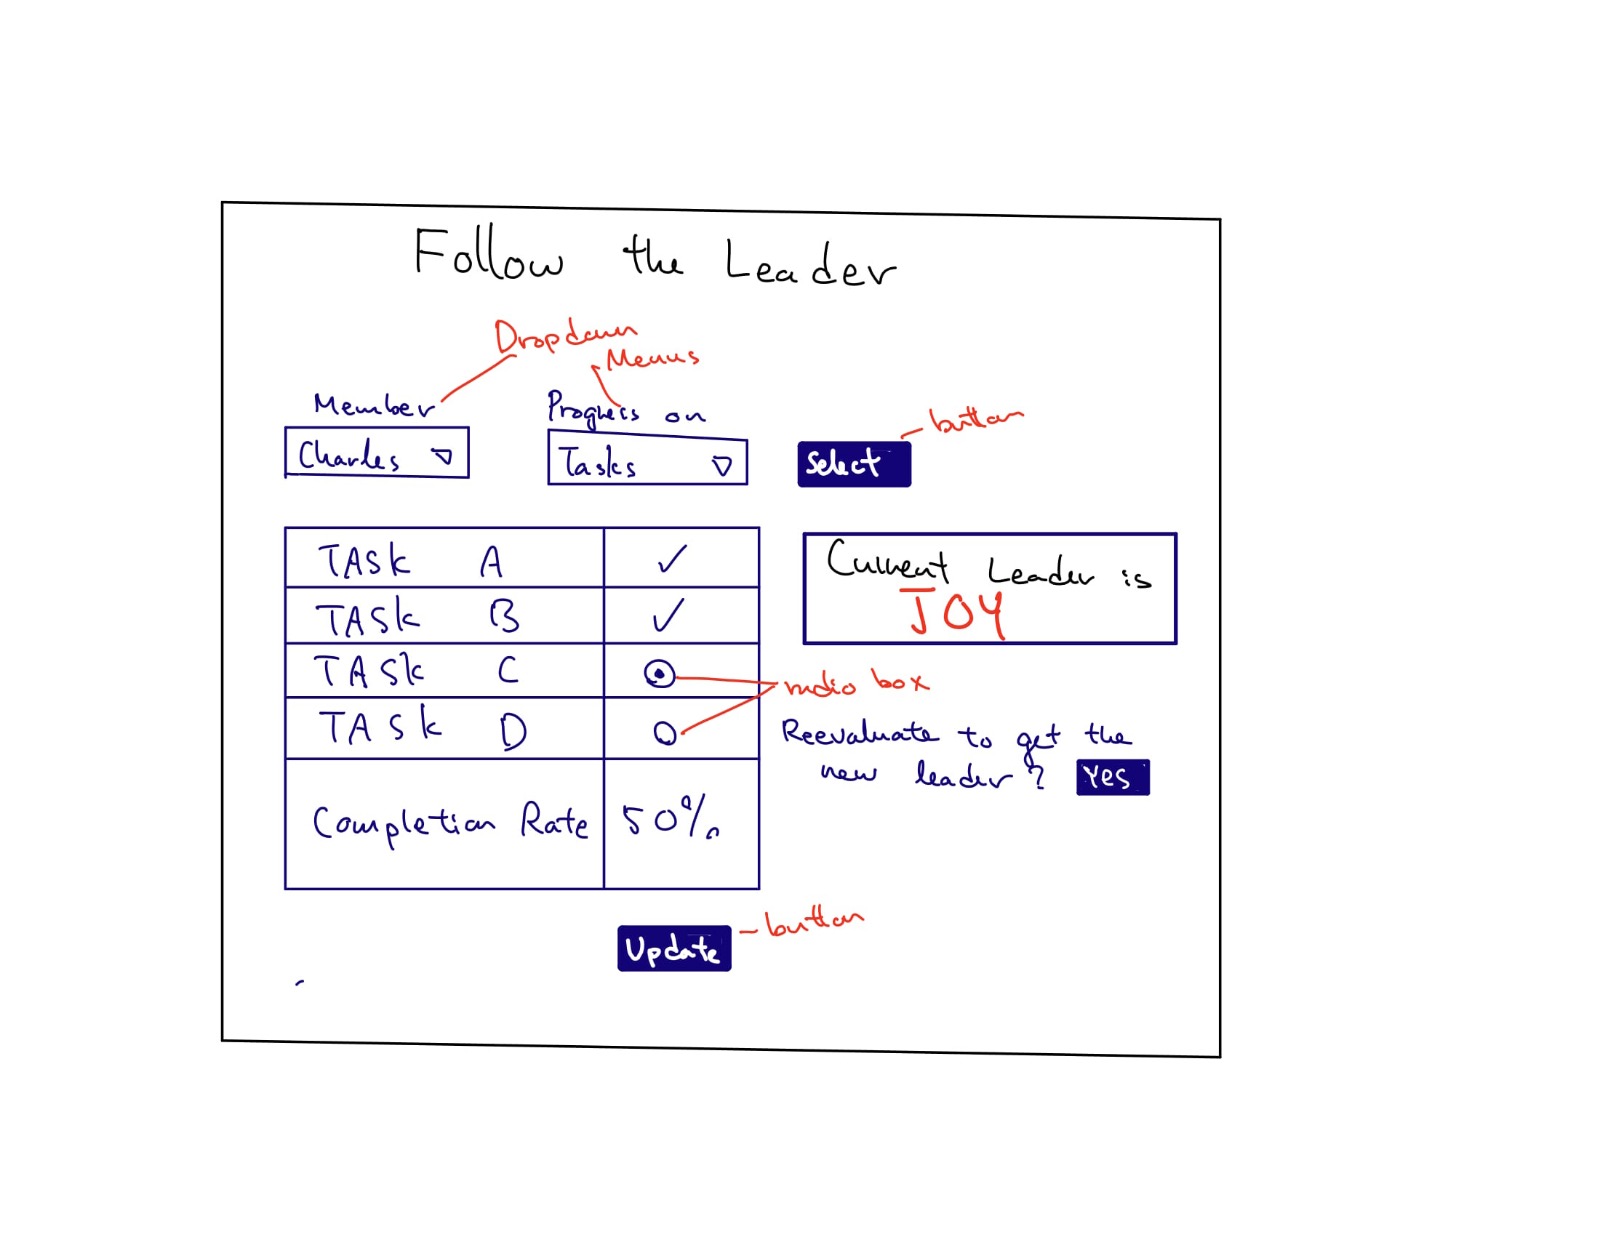 Follow the Leader
Dropdown
Menus
Member
Progress on
button
Charles
Tasks
Select
TASk A
TASk B
TASk C
TASk D
Completion Rate 50%
Current Leader is
JOY
radio box
Reevaluate to get the
new leader? Yes
Update
button